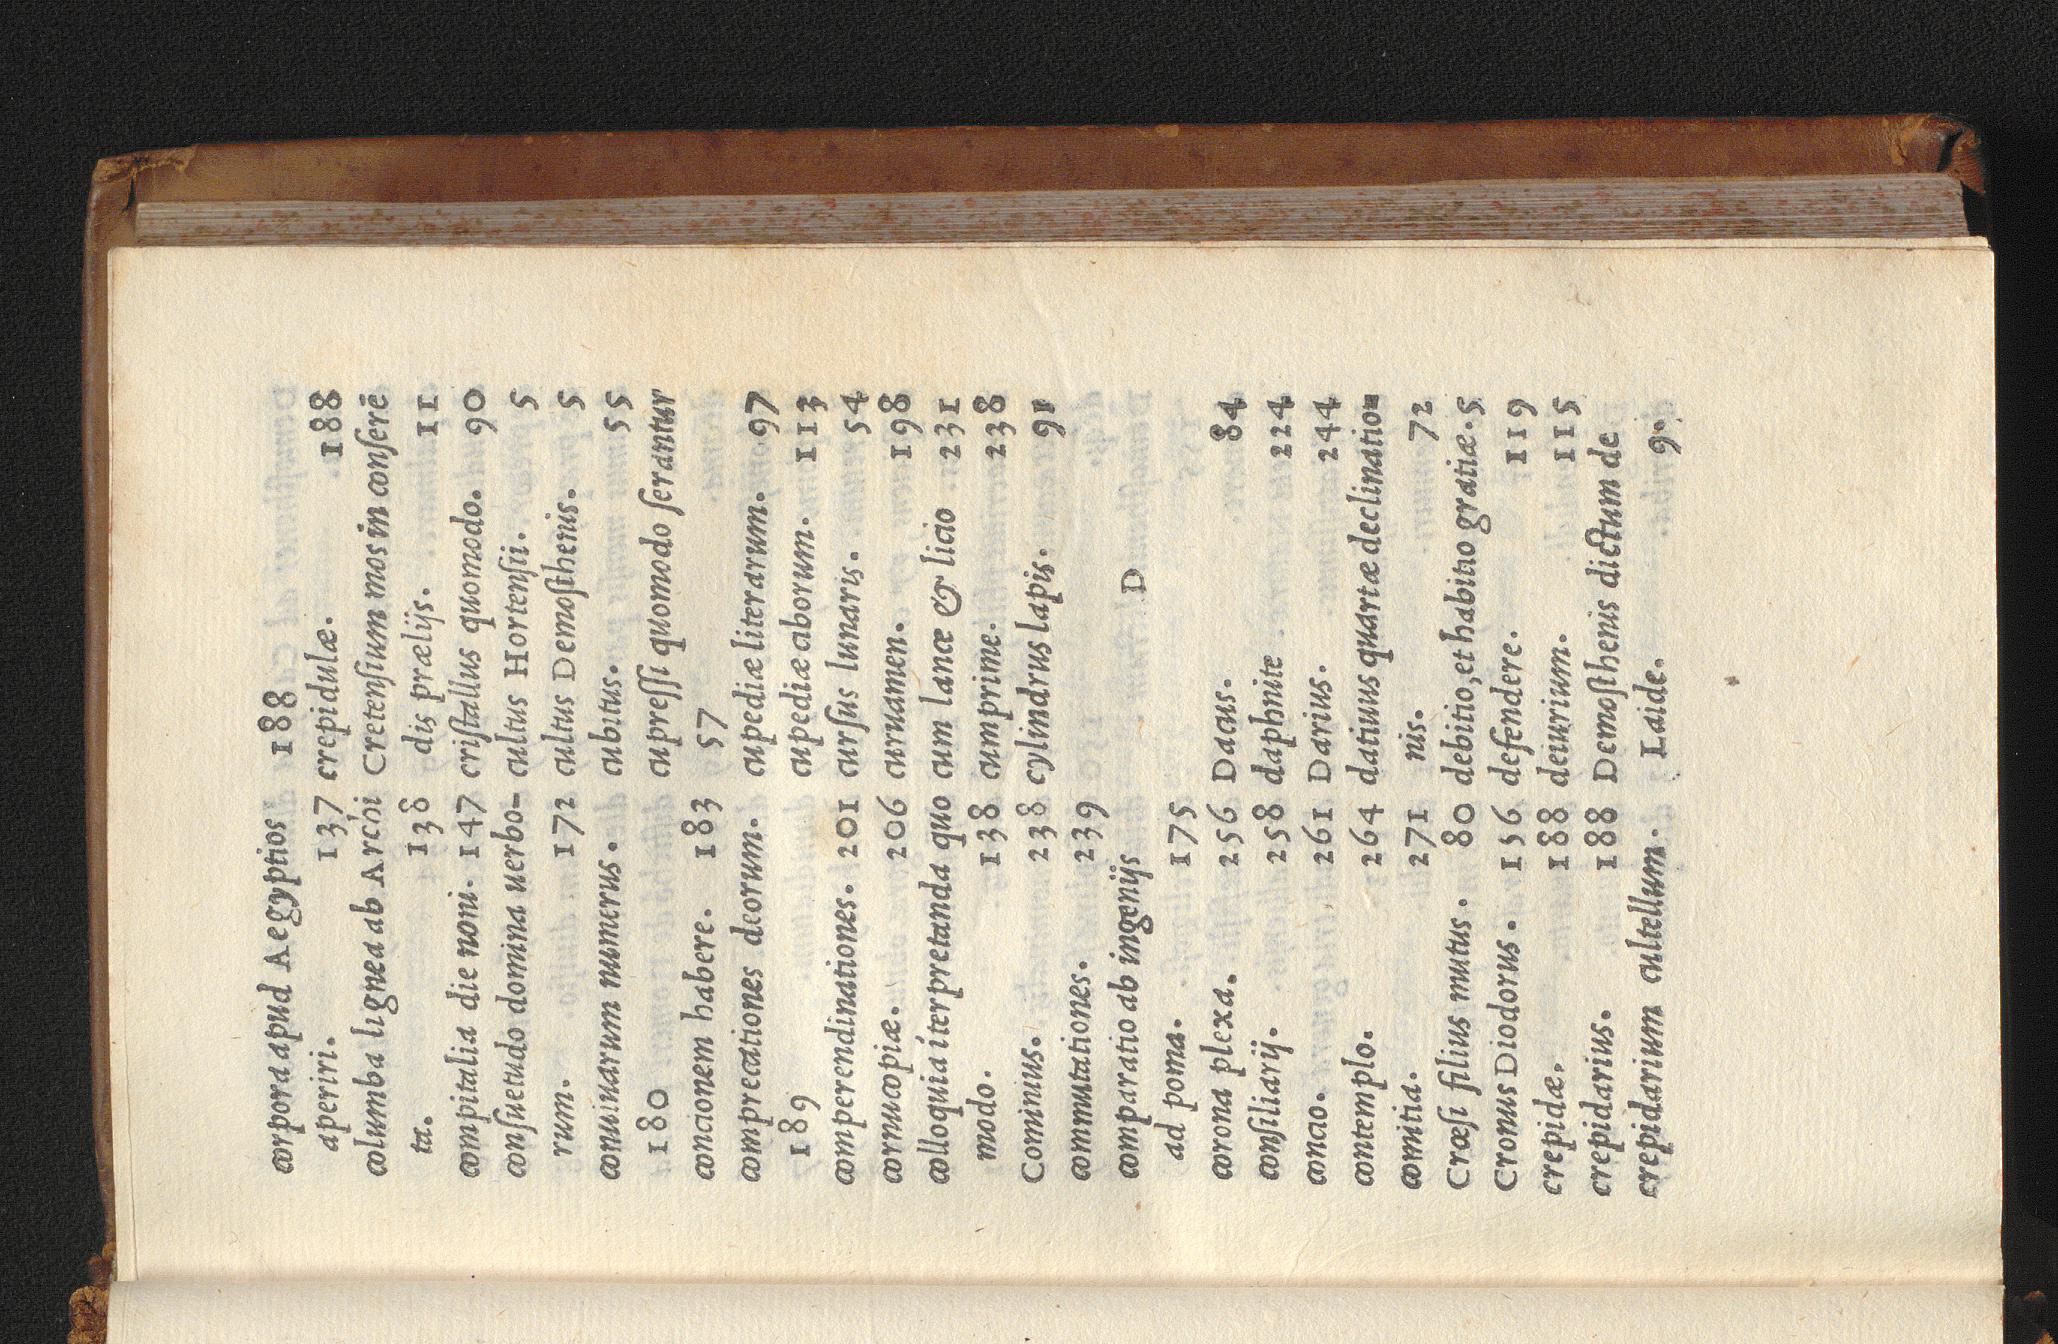 corpora apud Aegyptios
aperiri. 137
columba lignea ab Archi
ta. 138
compitalia die noni. 147
consuetudo domina uerbo-
rum. 172
conuiuarum numerus.
180
concionem habere. 183
comprecationes deorum.
189
comperendinationes. 201
cornucopiæ. 206
colloquia íterpretanda quo
modo. 138
Cominius. 238
commutationes. 239
comparatio ab ingenijs
ad poma. 175
corona plexa. 256
consiliarij. 258
concio. 261
contemplo. 264
comitia. 271
Crœsi filius mutus. 80
Cronus Diodorus. 156
crepidæ. 188
crepidarius. 188
crepidarium cultellum.
188
crepidulæ. 188
Cretensium mos in conserē
dis prælijs. 11
cristallus quomodo. 90
cultus Hortensii. 5
cultus Demosthenis. 5
cubitus. 55
cupressi quomodo serantur
57
cupediæ literarum. 97
cupediæ ciborum. 113
cursus lunaris. 54
curuamen. 198
cum lance & licio 231
cumprime. 238
cylindrus lapis. 91
D
Dacus. 84
daphnite 224
Darius. 244
datiuus quartæ declination
nis. 72
debitio, et habitio gratiæ. 5
defendere. 119
deuirium. 115
Demosthenis dictum de
Laide. 9.